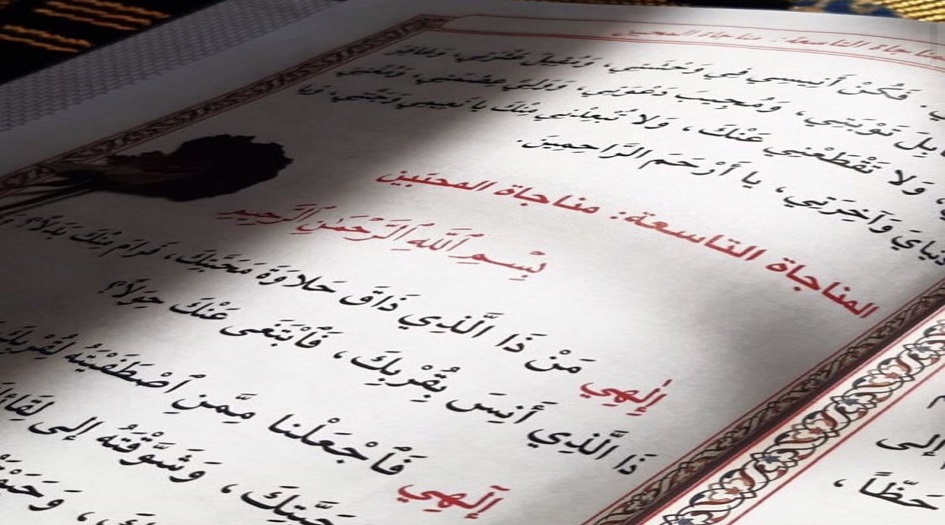 مناجاة التاسعة: مناجاة المحبين
فكن أنيسي في وحشتي، ومقيل عثرتي، وغافر
قابل توبتي، ومجيب دعوتي، وولي عصمتي، ومغني
ولا تقطعني عنك، ولا تبعدني منك يا نعيمي وجنتي، ويا
دنياي وآخرتي، يا أرحم الراحمين.
المناجاة التاسعة: مناجاة المحبين
بسم الله الرحمن الرحيم
إلهي من ذا الذي ذاق حلاوة محبتك، فرام منك بدلا؟
ذا الذي أنس بقربك، فابتغى عنك حولا؟
إلهي فاجعلنا ممن اصطفيته لقربك
وشوقته إلى لقائك
إلى
حظا،